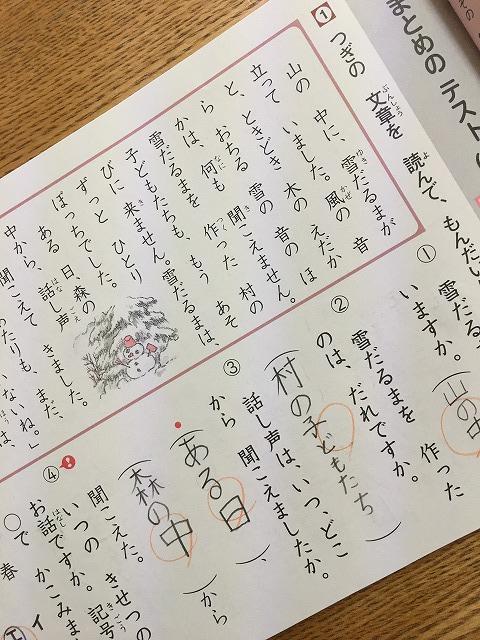 まとめの テスト
1 つぎの 文章を 読んで、もんだい
山の 中に、雪だるまが
立って いました。風の 音
と、ときどき 木の えだか
ら おちる 雪の 音の ほ
かは、何も 聞こえません。
雪だるまを 作った 村の
子どもたちも、もう あそ
びに 来ません。雪だるまは、
ずっと ひとり
ぼっちでした。
ある 日、森の
中から、話し声
聞こえて きました。
たりも、まだ、
いないね。」
は、
① 雪だるま
いますか。(山の中
② 雪だるまを 作った
のは、だれですか。
(村の子どもたち)
③ 話し声は、いつ、どこ
から 聞こえましたか。
(ある日)、
(森の中)から
聞こえた。
④ いつの きせつの
お話ですか。記号
○で かこみま
春 イ
エ